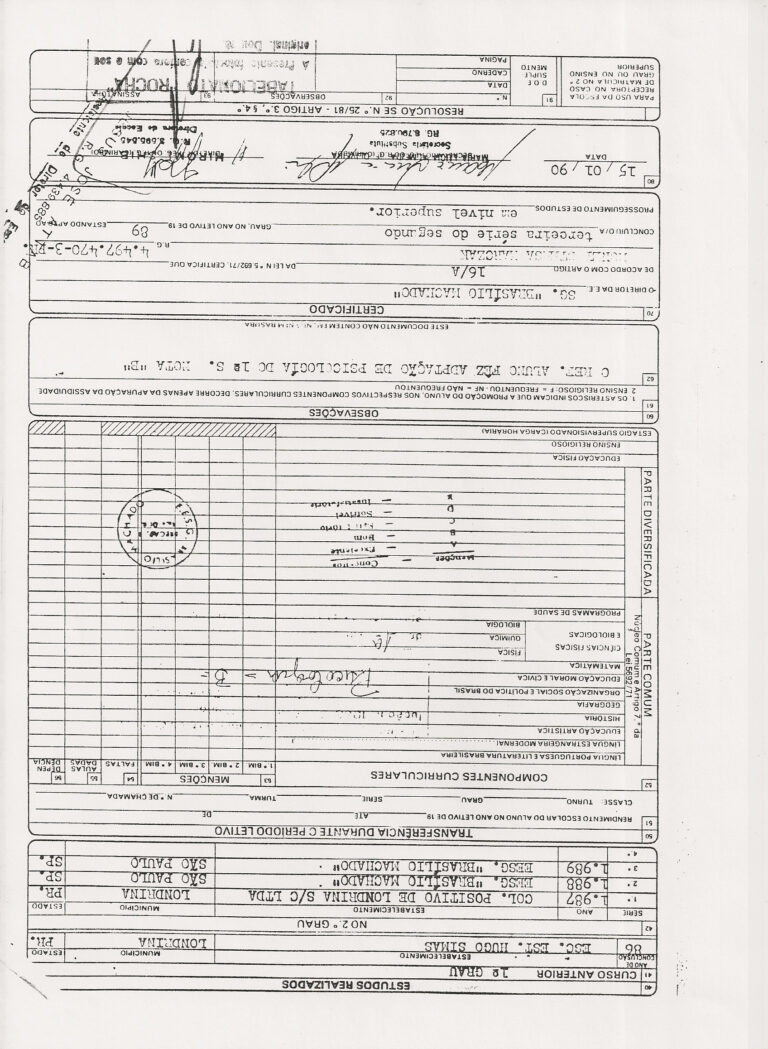 40 ESTUDOS REALIZADOS
41 CURSO ANTERIOR 1º GRAU
ANO DE CONCLUSÃO ESTABELECIMENTO MUNICÍPIO ESTADO
86 ESC. EST. HUGO SIMAS LONDRINA PR.
42 NO 2.º GRAU
SÉRIE ANO ESTABELECIMENTO MUNICÍPIO ESTADO
1.ª 1.987 COL. POSITIVO DE LONDRINA S/C LTDA LONDRINA PR.
2.ª 1.988 EESG. "BRASÍLIO MACHADO" SÃO PAULO SP.
3.ª 1.989 EESG. "BRASÍLIO MACHADO" SÃO PAULO SP.
4.ª
50 TRANSFERÊNCIA DURANTE O PERÍODO LETIVO
51 RENDIMENTO ESCOLAR DO ALUNO NO ANO LETIVO DE 19 ATÉ DE
CLASSE: TURNO GRAU SÉRIE TURMA N.º DE CHAMADA
52 COMPONENTES CURRICULARES 53 MENÇÕES 54 FALTAS 55 AULAS DADAS 56 DEPENDÊNCIA
1.º BIM 2.º BIM 3.º BIM 4.º BIM
PARTE COMUM
Núcleo Comum e Artigo 7.º da
Lei 5692/71
LÍNGUA PORTUGUESA E LITERATURA BRASILEIRA
LÍNGUA ESTRANGEIRA MODERNA
EDUCAÇÃO ARTÍSTICA
HISTÓRIA
GEOGRAFIA
ORGANIZAÇÃO SOCIAL E POLÍTICA DO BRASIL
EDUCAÇÃO MORAL E CÍVICA
Psicologia = B =
MATEMÁTICA
CIÊNCIAS FÍSICAS E BIOLÓGICAS
FÍSICA
QUÍMICA
BIOLOGIA
PROGRAMAS DE SAÚDE
PARTE DIVERSIFICADA
Menções Conceitos
A — Excelente
B — Bom
C — Satisfatório
D — Sofrível
E — Insatisfatório
EDUCAÇÃO FÍSICA
ENSINO RELIGIOSO
ESTÁGIO SUPERVISIONADO (CARGA HORÁRIA)
60 OBSERVAÇÕES
61 1 OS ASTERISCOS INDICAM QUE A PROMOÇÃO DO ALUNO, NOS RESPECTIVOS COMPONENTES CURRICULARES, DECORRE APENAS DA APURAÇÃO DA ASSIDUIDADE
2 ENSINO RELIGIOSO: F = FREQUENTOU - NF = NÃO FREQUENTOU
62 O REF. ALUNO FÊZ ADPTAÇÃO DE PSICOLOGIA DO 1ª S. NOTA "B"
ESTE DOCUMENTO NÃO CONTÉM EMENDAS NEM RASURA
70 CERTIFICADO
O DIRETOR DA E.E. SG. "BRASÍLIO MACHADO"
DE ACORDO COM O ARTIGO 16/A DA LEI N.º 5.692/71, CERTIFICA QUE
R.G. 4.497.470-3-PR.
CONCLUIU O/A terceira série do segundo GRAU, NO ANO LETIVO DE 19 89 ESTANDO APTO AO
PROSSEGUIMENTO DE ESTUDOS em nível superior.
80 15 / 01 / 90
DATA
Secretaria Substituta
RG. 8.790.825
Diretora de Escola
RESOLUÇÃO SE N.º 25/81 - ARTIGO 3.º, § 4.º
PARA USO DA ESCOLA RECEPTORA NO CASO DE MATRÍCULA NO 2.º GRAU OU NO ENSINO SUPERIOR
91 DOE SUPLEMENTO
N.º
DATA
CADERNO
PÁGINA
92 OBSERVAÇÕES
93 ASSINATURA
TABELIONATO "ROCHA"
A Presente fotocópia confere com o seu
original. Dou fé